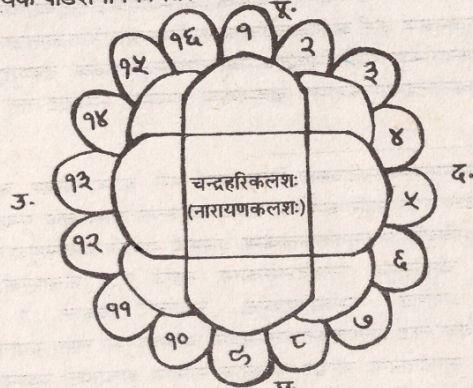 पू.
१
२
३
४
५
६
७
८
९
१०
११
१२
१३
१४
१५
१६
द.
उ.
चन्द्रहरिकलशः
(नारायणकलशः)